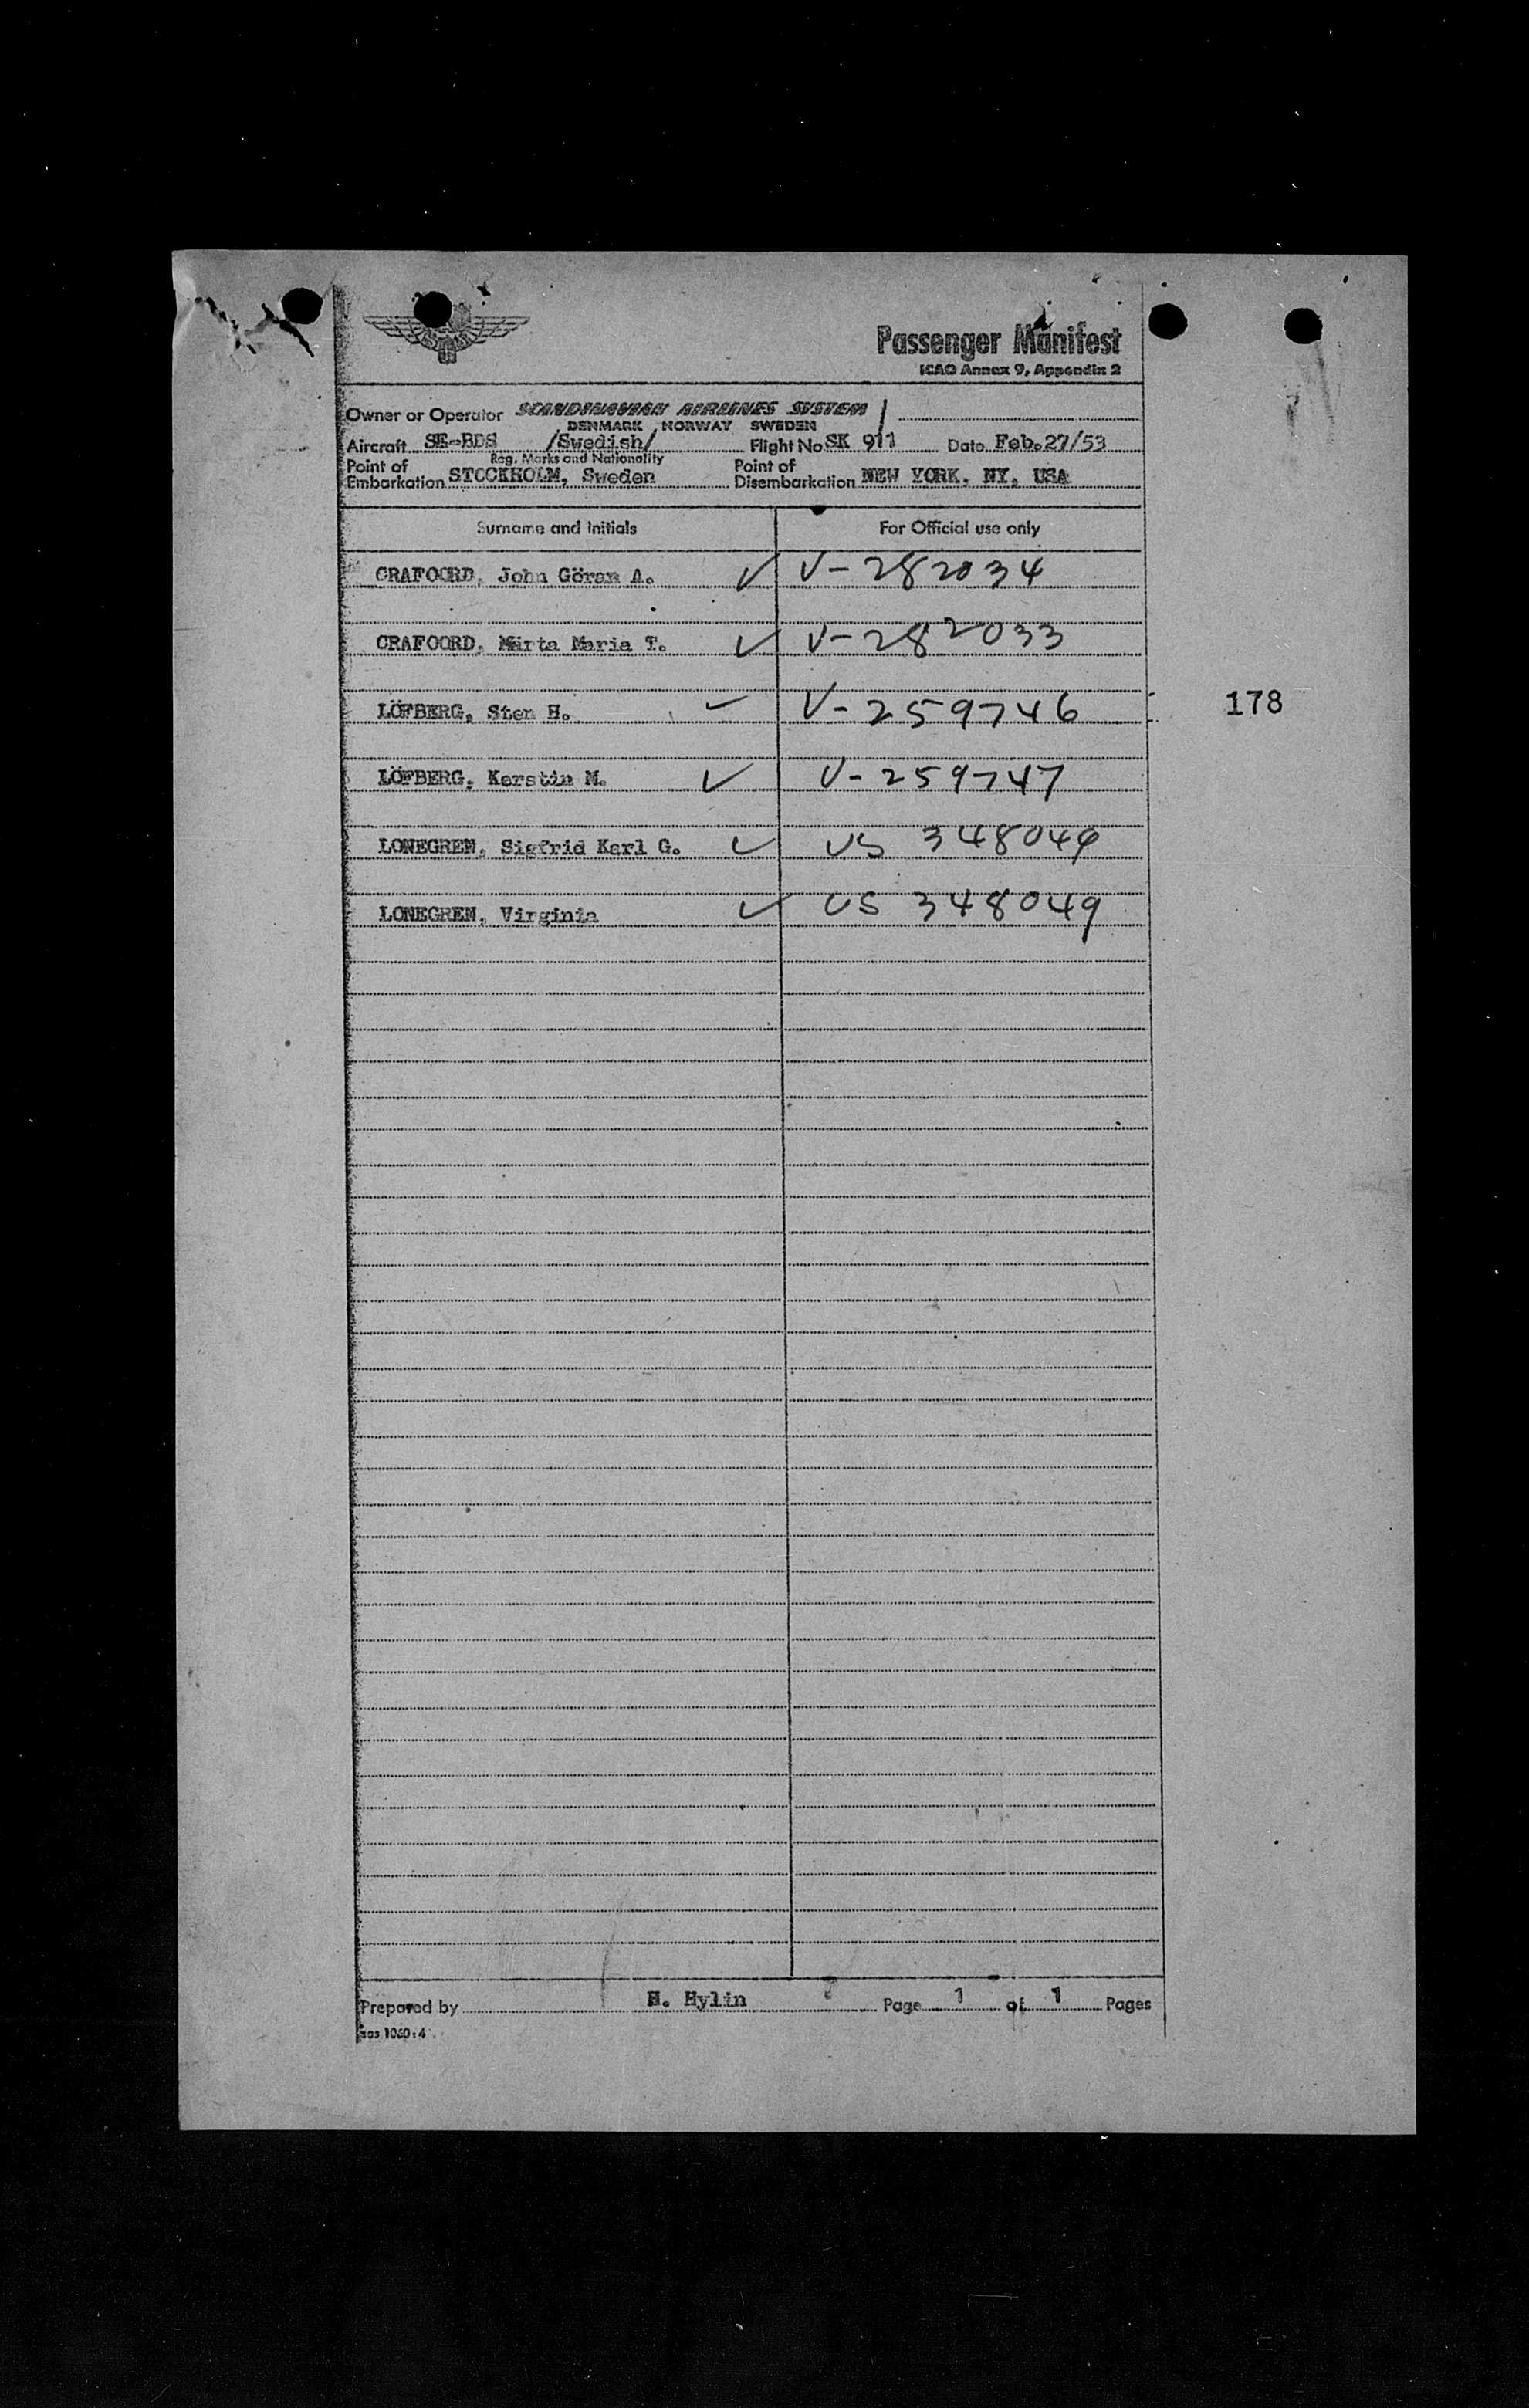 Passenger Manifest
ICAO Annex 9, Appendix 2
Owner or Operator SCANDINAVIAN AIRLINES SYSTEM
DENMARK NORWAY SWEDEN
Aircraft SE-BDS /Swedish/ Flight No SK 911 Date Feb.27/53
Reg. Marks and Nationality
Point of Embarkation STOCKHOLM, Sweden Point of Disembarkation NEW YORK, NY, USA
Surname and Initials For Official use only
CRAFOORD, John Göran A. ✓ V-282034
CRAFOORD, Märta Maria T. ✓ V-282033
LÖFBERG, Sten H. ✓ V-259746
178
LÖFBERG, Kerstin M. ✓ V-259747
LONEGREN, Sigfrid Karl G. ✓ US
LONEGREN, Virginia ✓ US 348049
Prepared by H. Hylin Page 1 of 1 Pages
sas 1060:4